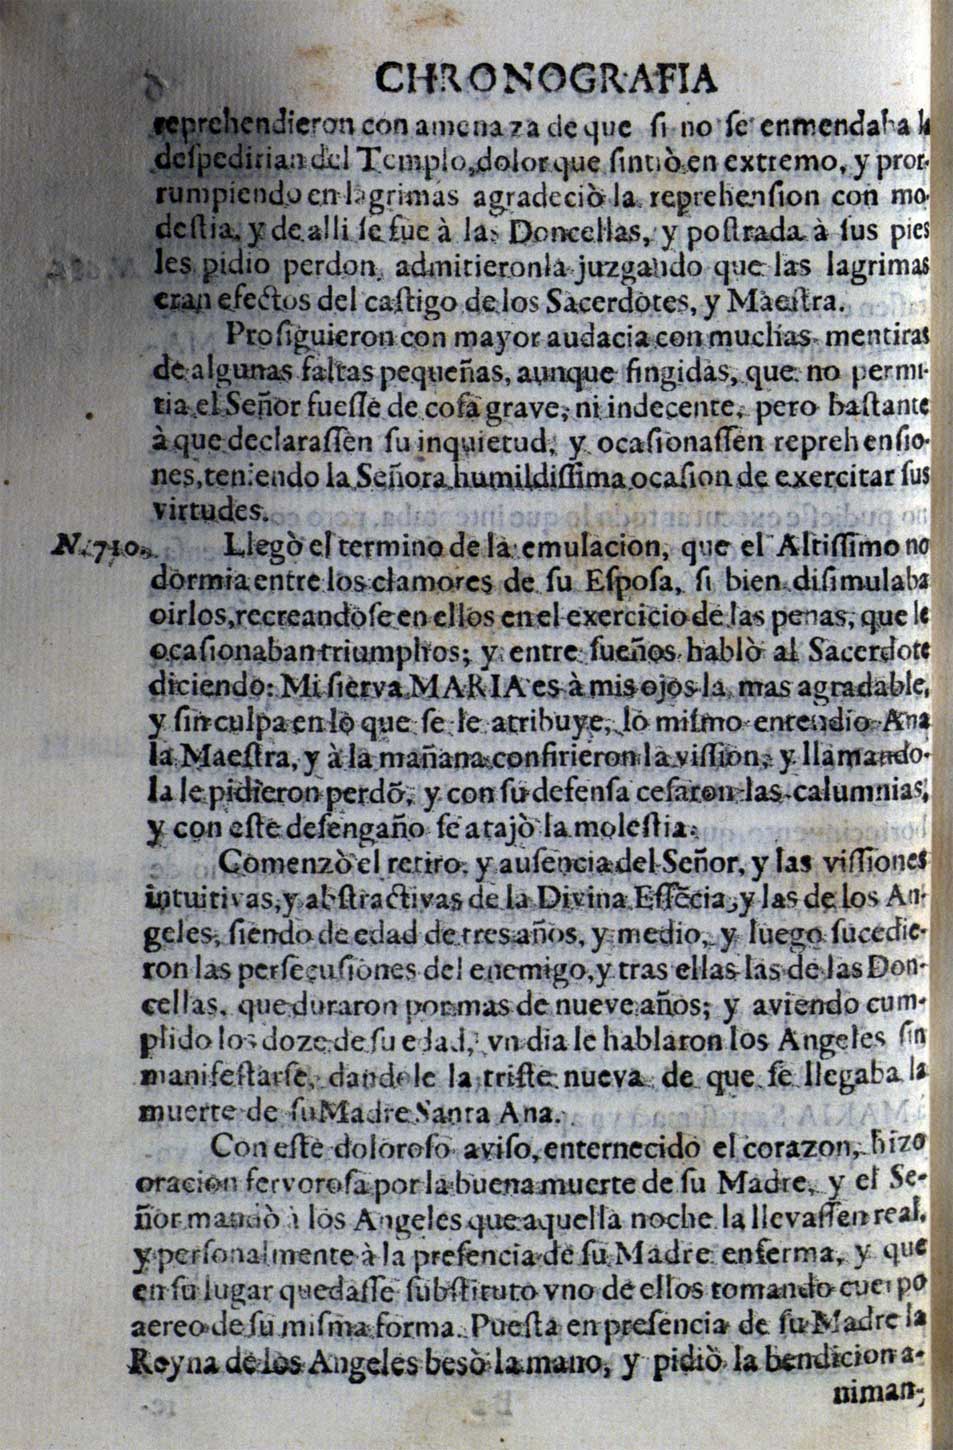 CHRONOGRAFIA
reprehendieron con amenaza de que si no se enmendaba la
despedirian del Templo, dolor que sintiò en extremo, y pror-
rumpiendo en lagrimas agradeciò la reprehension con mo-
destia, y de alli se fue à las Doncellas, y postrada à sus pies
les pidio perdon, admitieronla juzgando que las lagrimas
eran efectos del castigo de los Sacerdotes, y Maestra.
Prosiguieron con mayor audacia con muchas mentiras
de algunas faltas pequeñas, aunque fingidas, que no permi-
tia el Señor fuesse de cosa grave, ni indecente, pero bastante
à que declarassen su inquietud, y ocasionassen reprehensio-
nes, teniendo la Señora humildissima ocasion de exercitar sus
virtudes.
N. 710. Llegò el termino de la emulacion, que el Altissimo no
dormia entre los clamores de su Esposa, si bien disimulaba
oirlos, recreandose en ellos en el exercicio de las penas, que le
ocasionaban triumphos; y entre sueños hablò al Sacerdote
diciendo: Mi sierva MARIA es à mis ojos la mas agradable,
y sin culpa en lo que se le atribuye, lo mismo entendio Ana
la Maestra, y à la mañana confirieron la vission, y llamando-
la le pidieron perdõ, y con su defensa cesaron las calumnias,
y con este desengaño se atajò la molestia.
Comenzò el retiro, y ausencia del Señor, y las vissiones
intuitivas, y abstractivas de la Divina Essẽcia, y las de los An-
geles, siendo de edad de tres años, y medio, y luego sucedie-
ron las persecusiones del enemigo, y tras ellas las de las Don-
cellas, que duraron por mas de nueve años; y aviendo cum-
plido los doze de su edad, vn dia le hablaron los Angeles sin
manifestarse, dandole la triste nueva de que se llegaba la
muerte de su Madre Santa Ana.
Con este doloroso aviso, enternecido el corazon, hizo
oracion fervorosa por la buena muerte de su Madre, y el Se-
ñor mandò à los Angeles que aquella noche la llevassen real,
y personalmente à la presencia de su Madre enferma, y que
en su lugar quedasse substituto vno de ellos tomando cuerpo
aereo de su misma forma. Puesta en presencia de su Madre la
Reyna de los Angeles besò la mano, y pidiò la bendicion a-
niman-